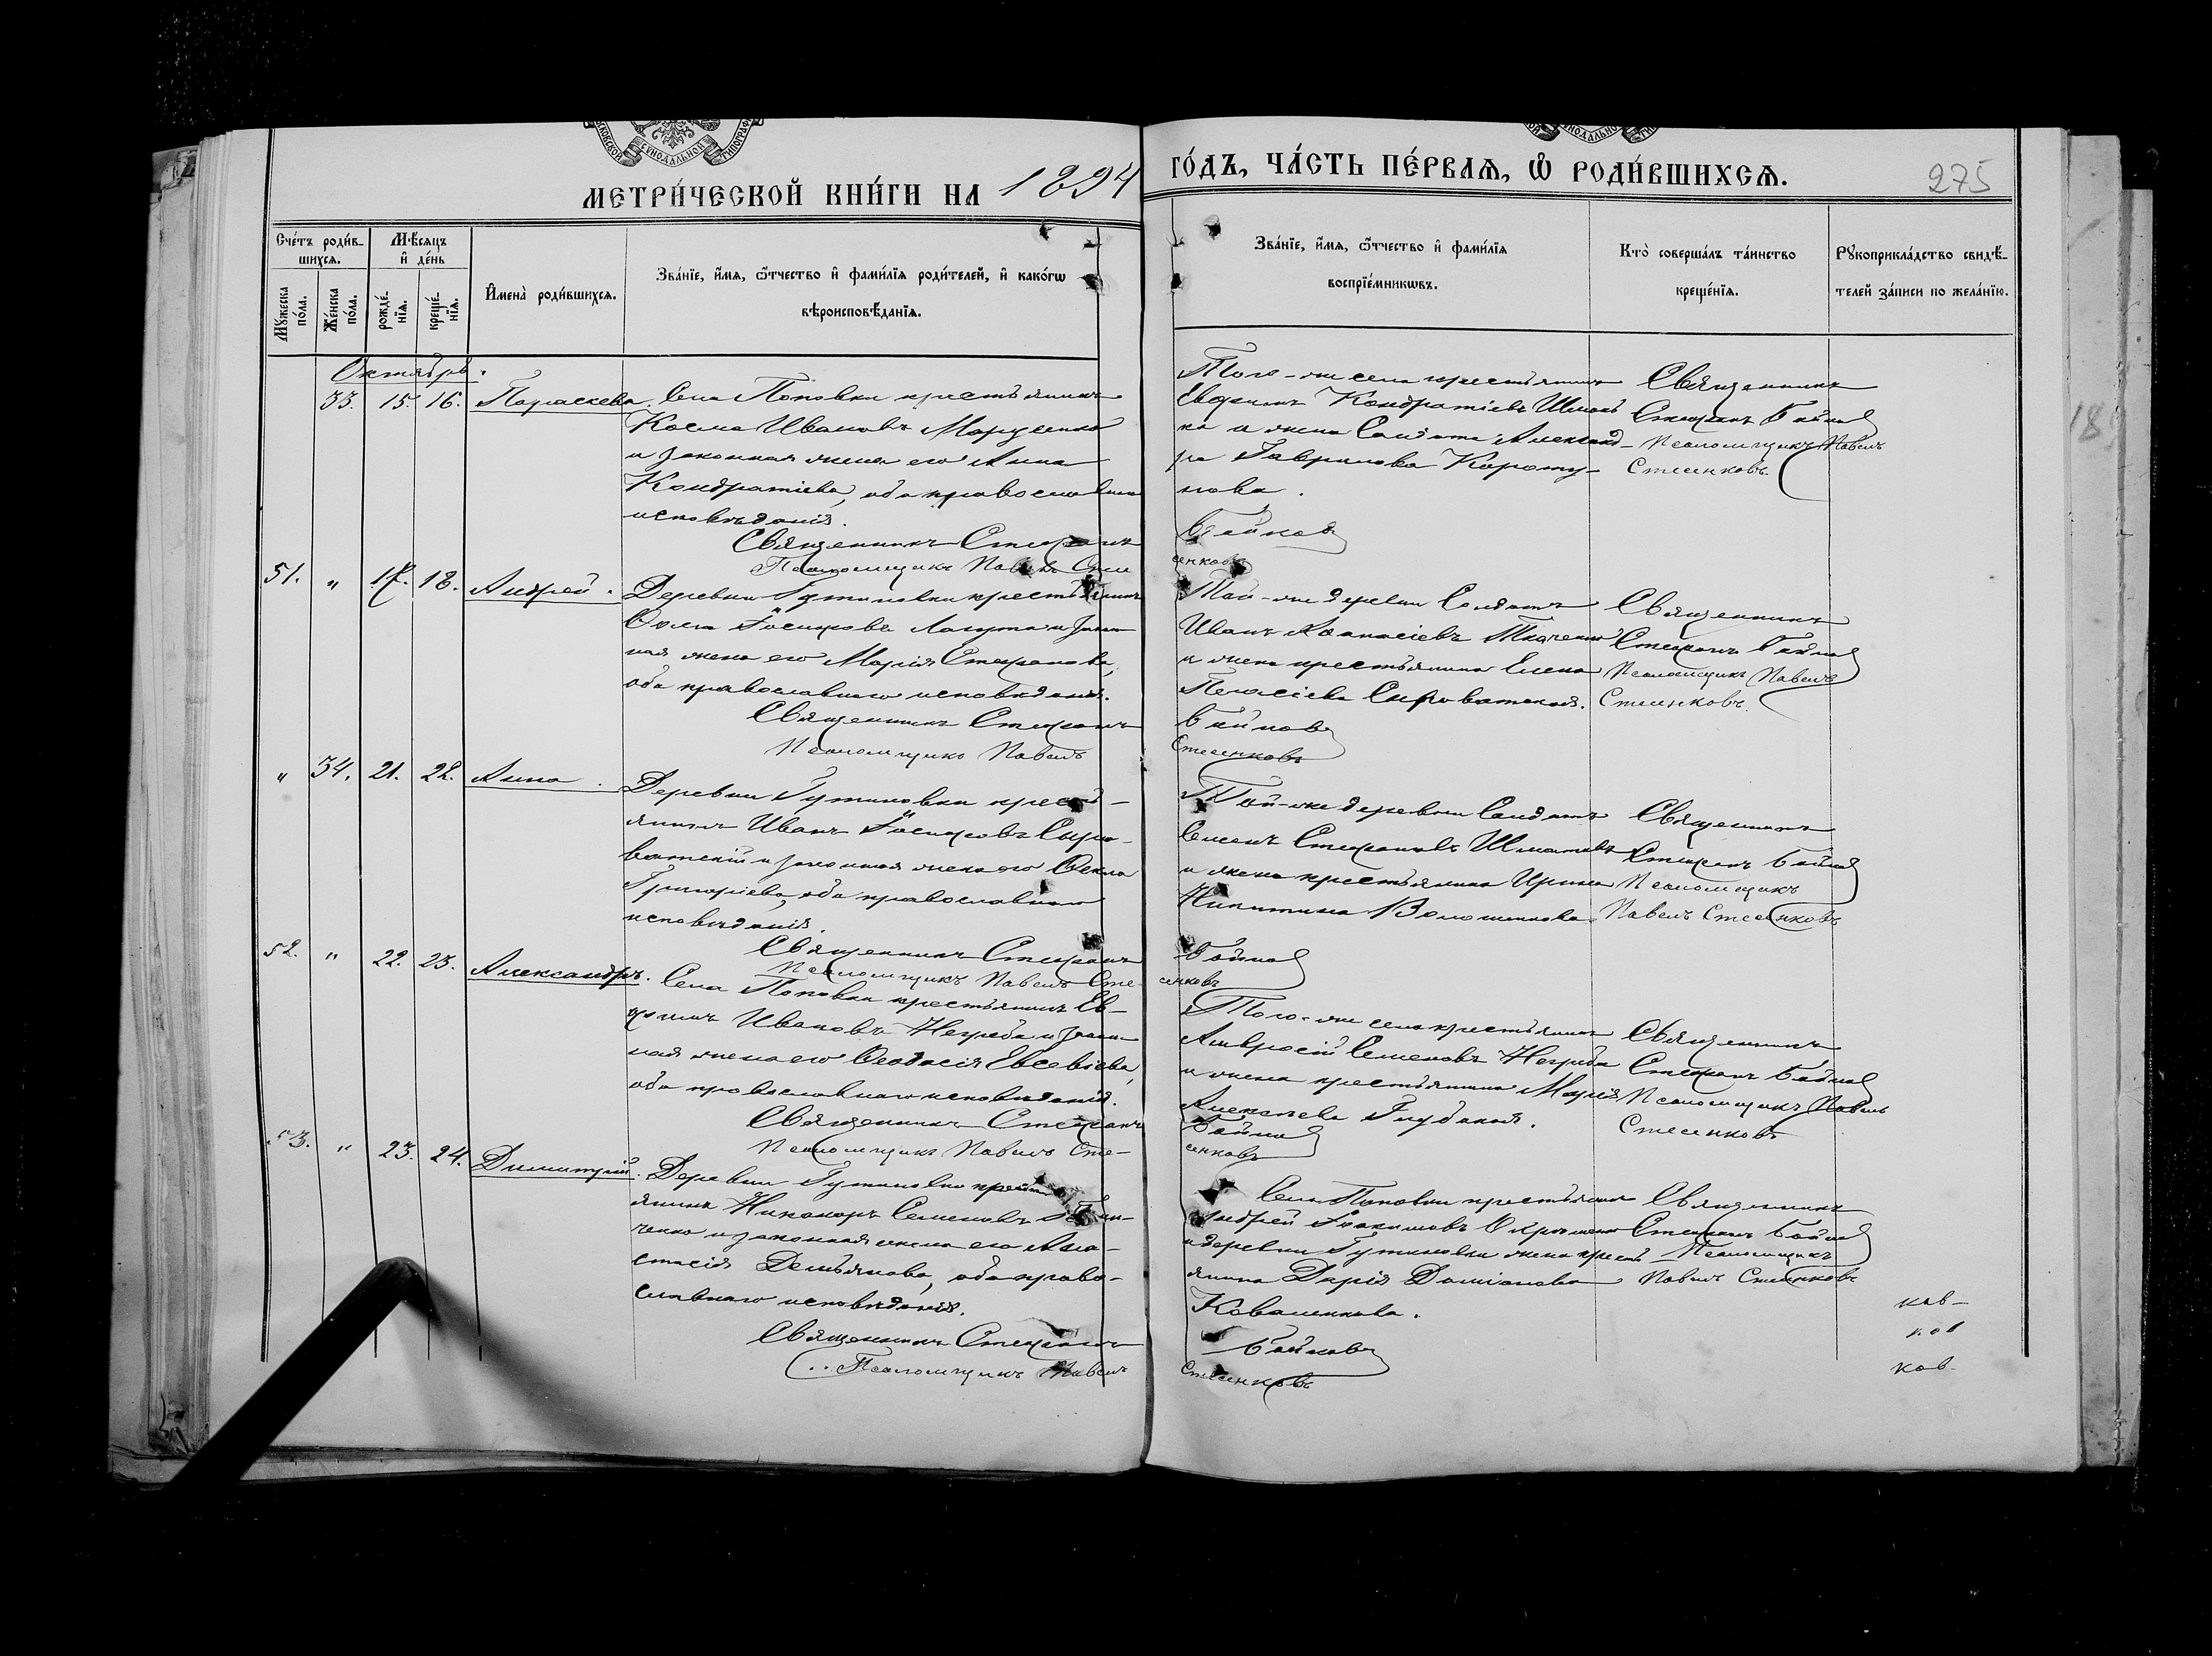 МЕТРИ́ЧЕСКОЙ КНИ́ГИ НА 1894
ГО́ДЪ, ЧА́СТЬ ПЕ́РВАѦ, Ѿ РОДИ́ВШИХСѦ.
275
Сче́тъ роди́в-
шихсѧ.
Мѣ́сѧцъ
и҆ де́нь
И҆мена̀ роди́вшихсѧ.
Зва́нїе, и҆́мѧ, ѻ҆́тчество и҆ фами́лїѧ роди́телей, и҆ како́гѡ
вѣроисповѣ́данїѧ.
Мꙋ́жеска
по́ла.
Же́нска
по́ла.
рожде́-
нїѧ.
креще́-
нїѧ.
Зва́нїе, и҆́мѧ, ѻ҆́тчество и҆ фами́лїѧ
воспрїе́мникѡвъ.
Кто̀ соверша́лъ та́инство
креще́нїѧ.
Рꙋкоприкла́дство свидѣ́-
телей за́писи по жела́нїю.
Октябрь.
33. 15. 16. Параскева. Села Поповки крестьянинъ
Косма Ивановъ Марченко
и законная жена его Анна
Кондратіева, оба православнаго
исповѣданія.
Священникъ Стефанъ
Псаломщикъ Павелъ Сте
Того-же села крестьянинъ
Евфимъ Кондратіевъ
ко и жена Солдата Александ-
ра Гаврилова
нова.
Бойков
сенковъ
Священникъ
Стефанъ Бойков
Псаломщикъ Павелъ
Стесенковъ.
51. " 17. 18. Андрей. Деревни Гутиновки крестьянинъ
Іосифовъ и закон
ная жена его Марія Стефанова,
оба православнаго исповѣданія.
Священникъ Стефанъ
Псаломщикъ Павелъ
Той-же деревни Солдатъ
Иванъ Аѳанасіевъ Ткаченко
и жена крестьянина Елена
Сыроватская.
Бойков
Стесенковъ
Священникъ
Стефанъ Бойков
Псаломщикъ Павелъ
Стесенковъ.
" 34. 21. 22. Анна. Деревни Гутиновки кресть-
янинъ Иванъ Іосифовъ Сыро-
ватскій и законная жена его Ѳекла
Григоріева, оба православнаго
исповѣданія.
Священникъ Стефанъ
Псаломщикъ Павелъ Сте-
Той-же деревни Солдатъ
Семенъ Стефановъ
и жена крестьянина Ирина
Никитина Волошинова
Бойков
сенковъ
Священникъ
Стефанъ Бойков
Псаломщикъ
Павелъ Стесенковъ
52. " 22. 23. Александръ. Села Поповки крестьянинъ Ев-
фимъ Ивановъ Негреба и закон
ная жена его Ѳеодосія Евсевіева,
оба православнаго исповѣданія.
Священникъ Стефанъ
Псаломщикъ Павелъ Сте-
Того-же села крестьянинъ
Амвросій Семеновъ Негреба
и жена крестьянина Марія
Алексѣева
Бойков
сенковъ
Священникъ
Стефанъ Бойков
Псаломщикъ Павелъ
Стесенковъ
53. " 23. 24. Димитрій. Деревни Гутиновки кресть
янинъ Никаноръ Семеновъ
ченко и законная жена его Ана-
стасія Демьянова, оба право-
славнаго исповѣданія.
Священникъ Стефанъ
Псаломщикъ Павелъ
Села Поповки крестьянинъ
Андрей Іоакимовъ
и деревни Гутиновки жена кресть
янина Дарія Даміанова
Коваленкова.
Бойковъ
Стесенковъ
Священникъ
Стефанъ Бойков
Псаломщикъ
Павелъ Стесенковъ
ков-
ков
ков-